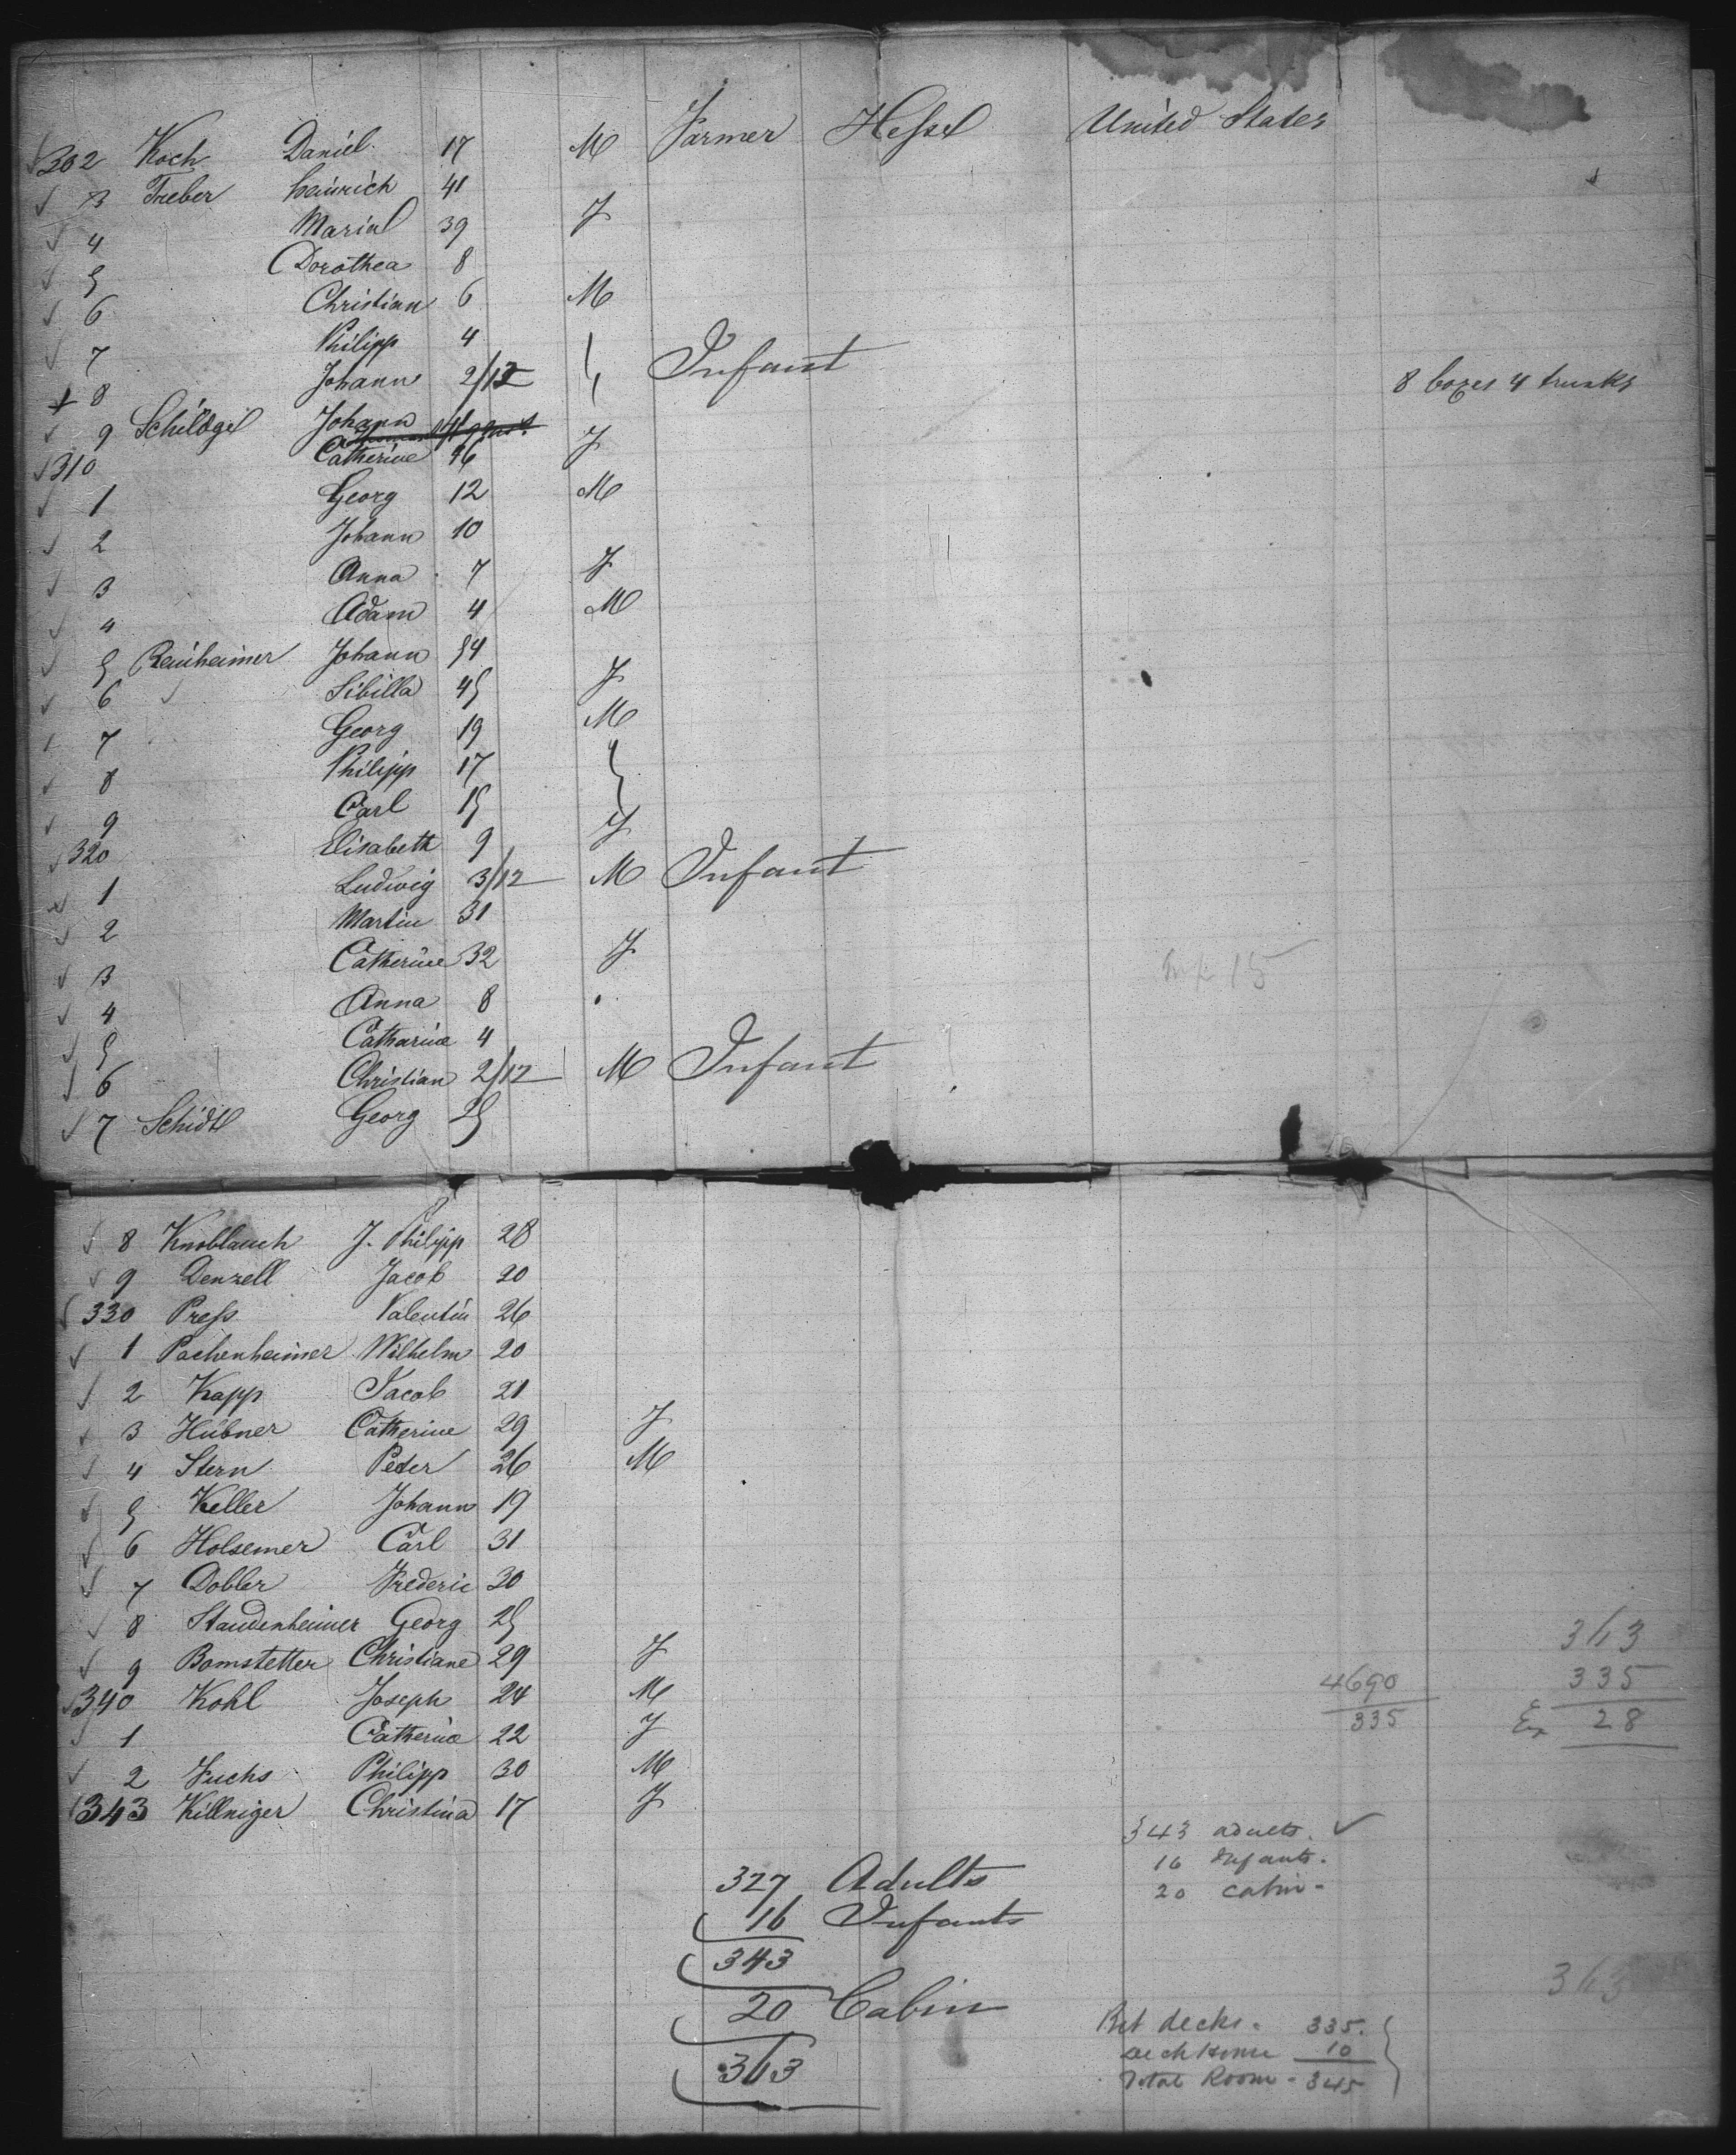 302 Koch Daniel 17 M Farmer Hessel United States
3 Treber Heinrich 41
4 Maria 39 F
5 Dorothea 8
6 Christian 6 M
7 Philipp 4
8 Johann 2/12 Infant 8 boxes 4 trunks
9 Schildgel Johann
310 Catherine 46 F
1 Georg 12 M
2 Johann 10
3 Anna 7 F
4 Adam 4 M
5 Reinheimer Johann 54
6 Sibilla 45 F
7 Georg 19 M
8 Philipp 17
9 Carl 15
320 Elisabeth 9 F
1 Ludwig 3/12 M Infant
2 Martin 31
3 Catherine 32 F
4 Anna 8
5 Catharine 4
6 Christian 2/12 M Infant
7 Schidt Georg 25
8 Knoblauch J. Philipp 28
9 Denzell Jacob 20
330 Press Valentin 26
1 Pachenheimer Wilhelm 20
2 Kapp Jacob 21
3 Hübner Catherine 29 F
4 Stern Peter 26 M
5 Keller Johann 19
6 Holsemer Carl 31
7 Dobler Frederic 30
8 Staudenheimer Georg 25
9 Bomstetter Christiane 29 F
340 Kohl Joseph 24 M
1 Catherine 22 F
2 Fuchs Philipp 30 M
343 Killniger Christina 17 F
363
4690 335
335 Ex 28
343 adults.
16 Infants.
20 Cabin
327 Adults
16 Infants
343
20 Cabin
363
363
Bet decks. 335.
Deck House 10
Total Room - 345